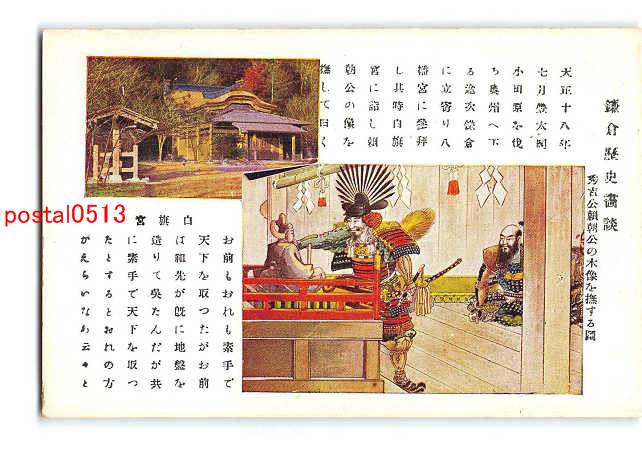 鎌倉歴史畫談
秀吉公頼朝公の木像を撫する圖
天正十八年
七月豊太閤
小田原を伐
ち奥州へ下
る途次鎌倉
に立寄り八
幡宮に參拜
し其時白旗
宮に詣し頼
朝公の像を
撫して曰く
白旗宮
お前もおれも素手で
天下を取つたがお前
は祖先が既に地盤を
造りて呉たんだが共
に素手で天下を取つ
たとするとおれの方
がえらいなあ云々と
postal0513